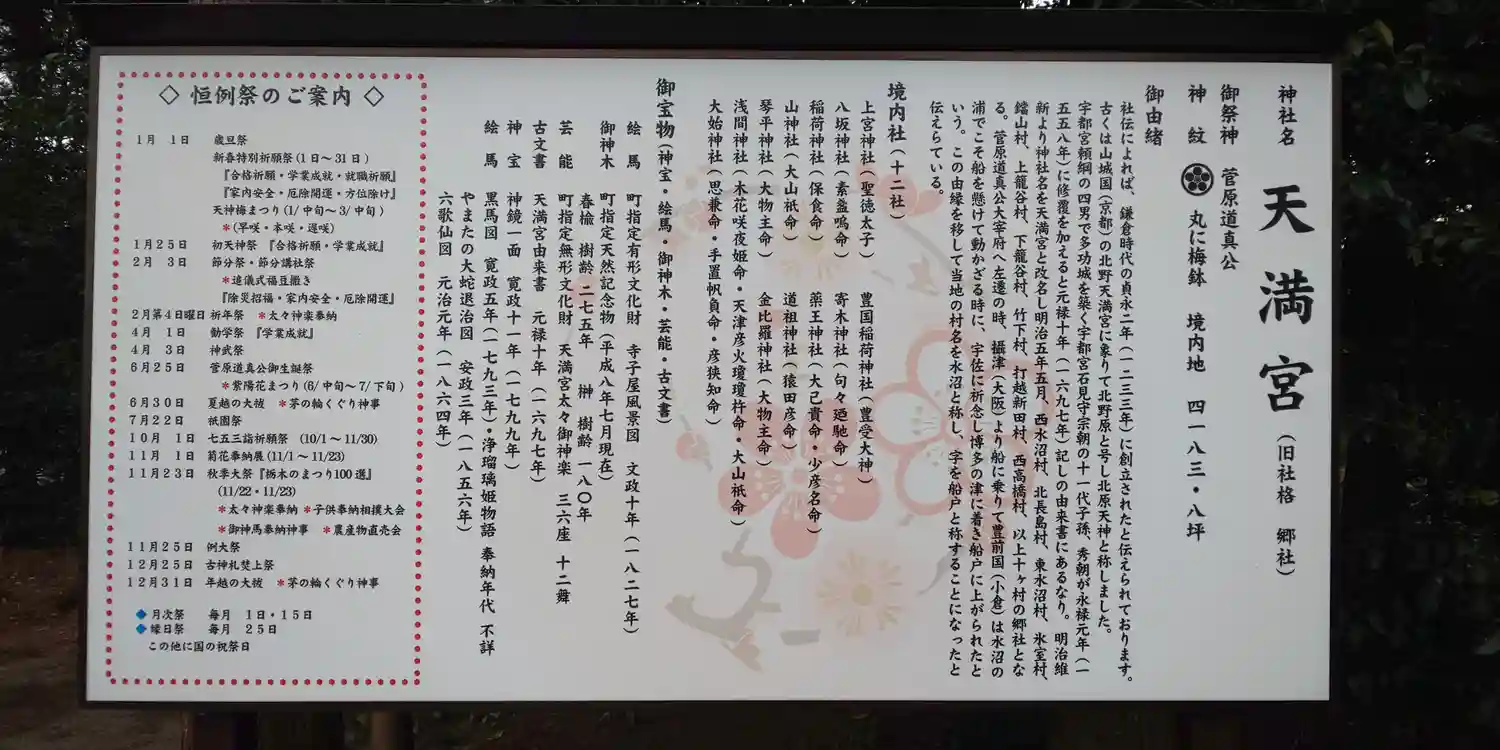 神社名　天満宮（旧社格　郷社）
御祭神　菅原道真公
神　紋　丸に梅鉢　境内地　四一八三・八坪
御由緒
社伝によれば、鎌倉時代の貞永二年（一二三三年）に創立されたと伝えられております。
古くは山城国（京都）の北野天満宮に象りて北野原と号し北原天神と称しました。
宇都宮頼綱の四男で多功城を築く宇都宮石見守宗朝の十一代子孫、秀朝が永禄元年（一
五五八年）に修覆を加えると元禄十年（一六九七年）記しの由来書にあるなり。明治維
新より神社名を天満宮と改名し明治五年五月、西水沼村、北長島村、東水沼村、氷室村、
鐺山村、上籠谷村、下籠谷村、竹下村、打越新田村、西高橋村、以上十ヶ村の郷社とな
る。菅原道真公大宰府へ左遷の時、攝津（大阪）より船に乗りて豊前国（小倉）は水沼の
浦でこそ船を懸けて動かざる時に、宇佐に祈念し博多の津に着き船戸に上がられたと
いう。この由縁を移して当地の村名を水沼と称し、字を船戸と称することになったと
伝えらている。
境内社（十二社）
上宮神社（聖徳太子）　豊国稲荷神社（豊受大神）
八坂神社（素盞嗚命）　寄木神社（句々廼馳命）
稲荷神社（保食命）　薬王神社（大己貴命・少彦名命）
山神社（大山祇命）　道祖神社（猿田彦命）
琴平神社（大物主命）　金比羅神社（大物主命）
浅間神社（木花咲夜姫命・天津彦火瓊瓊杵命・大山祇命）
大始神社（思兼命・手置帆負命・彦狭知命）
御宝物（神宝・絵馬・御神木・芸能・古文書）
絵　馬　町指定有形文化財　寺子屋風景図　文政十年（一八二七年）
御神木　町指定天然記念物（平成八年七月現在）
春楡　樹齢二七五年　榊　樹齢一八〇年
芸　能　町指定無形文化財　天満宮太々御神楽　三六座　十二舞
古文書　天満宮由来書　元禄十年（一六九七年）
神　宝　神鏡一面　寛政十一年（一七九九年）
絵　馬　黒馬図　寛政五年（一七九三年）・浄瑠璃姫物語　奉納年代　不詳
やまたの大蛇退治図　安政三年（一八五六年）
六歌仙図　元治元年（一八六四年）
◇ 恒例祭のご案内 ◇
1月　1日　歳旦祭
新春特別祈願祭(1日～31日)
『合格祈願・学業成就・就職祈願』
『家内安全・厄除開運・方位除け』
天神梅まつり(1/中旬～3/中旬)
＊(早咲・本咲・遅咲)
1月25日　初天神祭『合格祈願・学業成就』
2月　3日　節分祭・節分講社祭
＊追儺式福豆撒き
『除災招福・家内安全・厄除開運』
2月第4日曜日 祈年祭　＊太々神楽奉納
4月　1日　勧学祭『学業成就』
4月　3日　神武祭
6月25日　菅原道真公御生誕祭
＊紫陽花まつり(6/中旬～7/下旬)
6月30日　夏越の大祓　＊茅の輪くぐり神事
7月22日　祇園祭
10月　1日　七五三詣祈願祭 (10/1～11/30)
11月　1日　菊花奉納展(11/1～11/23)
11月23日　秋季大祭『栃木のまつり100選』
(11/22・11/23)
＊太々神楽奉納 ＊子供奉納相撲大会
＊御神馬奉納神事　＊農産物直売会
11月25日　例大祭
12月25日　古神札焚上祭
12月31日　年越の大祓　＊茅の輪くぐり神事
◆月次祭　毎月　1日・15日
◆縁日祭　毎月　25日
この他に国の祝祭日